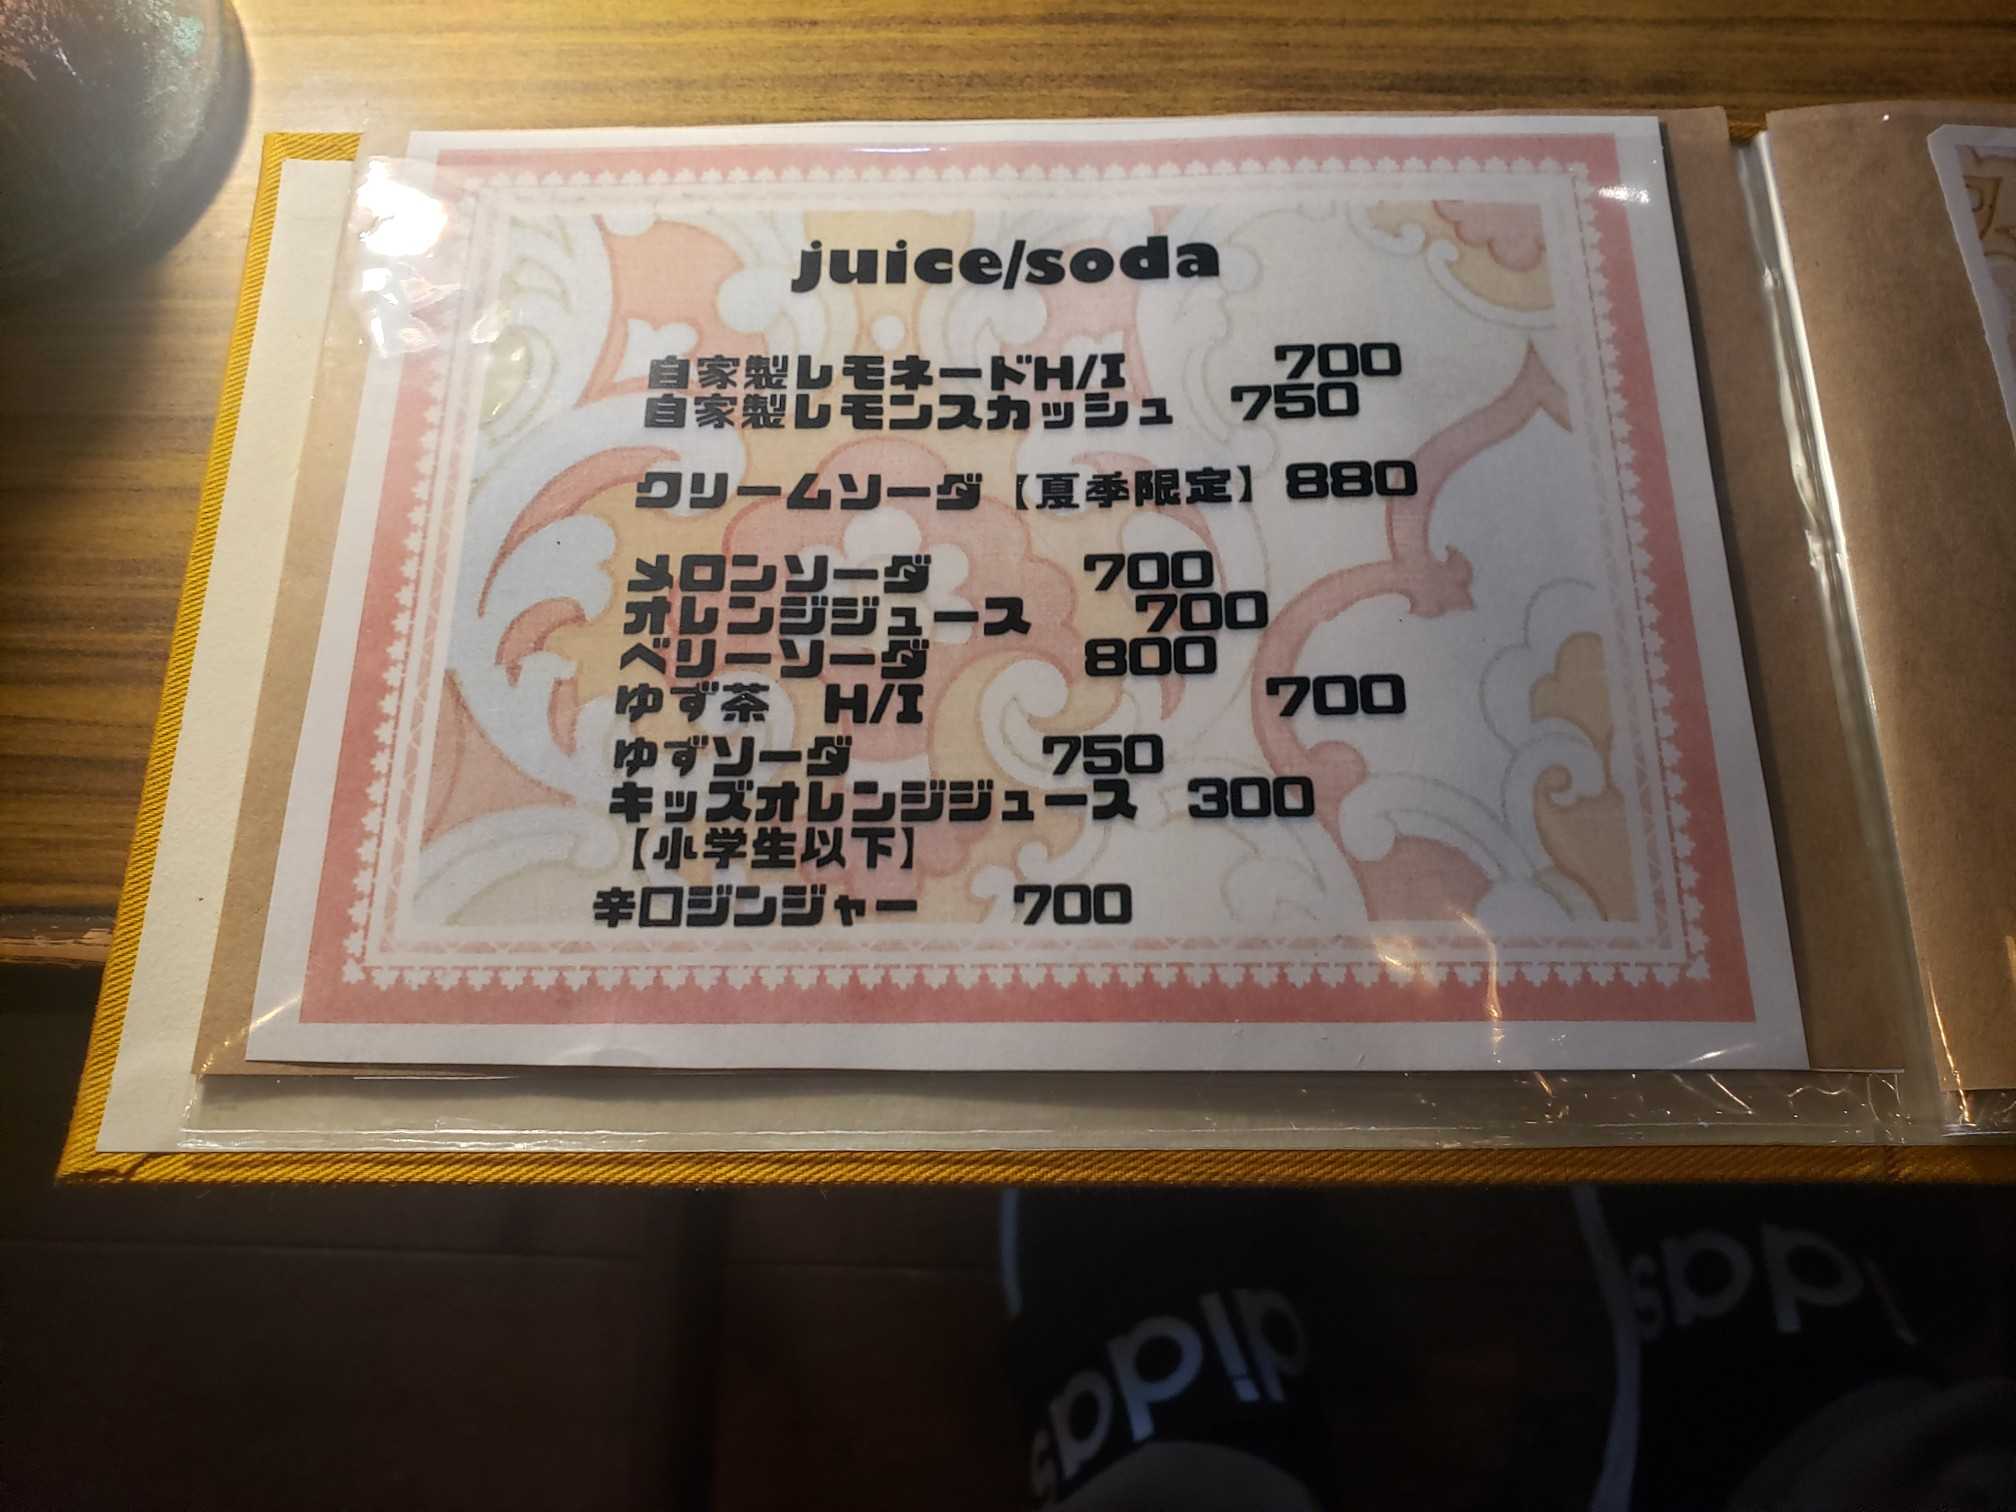 juice/soda
自家製レモネードH/I 700
自家製レモンスカッシュ 750
クリームソーダ【夏季限定】880
メロンソーダ 700
オレンジジュース 700
ベリーソーダ 800
ゆず茶 H/I 700
ゆずソーダ 750
キッズオレンジジュース 300
【小学生以下】
辛口ジンジャー 700
adidas